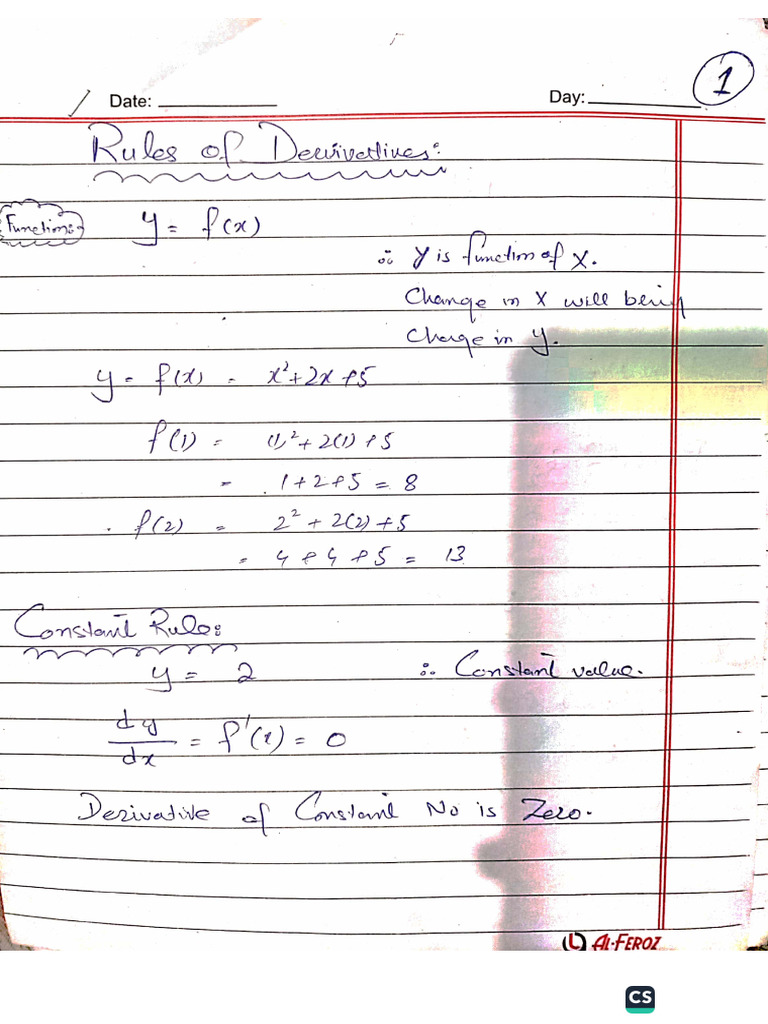 1
Date: ____________ Day: ____________
Rules of Derivatives:
Function: y = f(x)
∴ y is function of x.
Change in x will being
Change in y.
y = f(x) = x²+2x+5
f(1) = (1)²+2(1)+5
= 1+2+5 = 8
f(2) = 2²+2(2)+5
= 4+4+5 = 13
Constant Rule:
y = 2 ∴ Constant value.
dy/dx = f'(x) = 0
Derivative of Constant No is Zero.
AL-FEROZ
CS